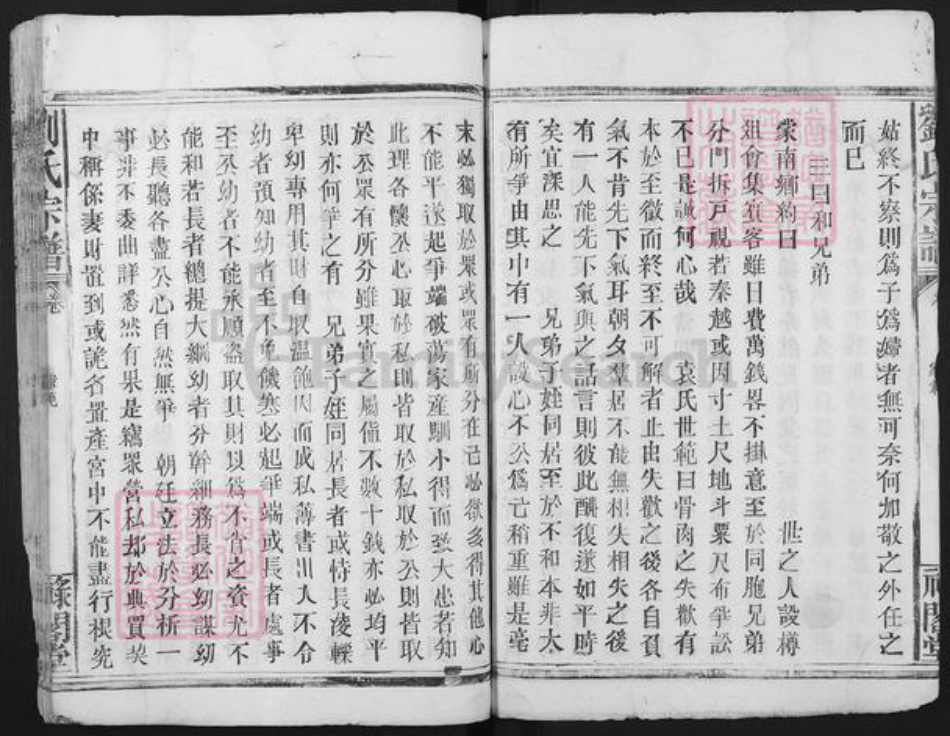 劉氏宗譜
祠閣堂
姑終不察則爲子爲婦者無可奈何加敬之外任之
而已
三曰和兄弟
蒙南鄉約曰 世之人設樽
俎會集賓客雖日費萬錢畧不掛意至於同胞兄弟
分門拆戸視若秦越或因寸土尺地斗粟尺布爭訟
不已是誠何心哉 袁氏世範曰骨肉之失歡有
本於至微而終至不可解者止由失歡之後各自負
氣不肯先下氣耳朝夕羣居不能無相失相失之後
有一人能先下氣與之話言則彼此酬復遂如平時
矣宜深思之 兄弟子姪同居至於不和本非大
有所爭由其中有一人設心不公爲己稍重雖是毫
末必獨取於眾或眾有所分在己必欲多得其他心
不能平遂起爭端破蕩家産馴小得而致大患若知
此理各懷公心取於私則皆取於私取於公則皆取
於公眾有所分雖果實之屬值不數十錢亦必均平
則亦何爭之有 兄弟子姪同居長者或恃長凌轢
卑幼專用其財自取温飽因而成私薄書出入不令
幼者預知幼者至不免饑寒必起爭端或長者處事
至公幼者不能承順盜取其財以爲不肖之資尤不
能和若長者總提大綱幼者分幹細務長必幼謀幼
必長聽各盡公心自然無爭 朝廷立法於分析一
事非不委曲詳悉然有果是竊眾營私却於典買契
中稱係妻財置到或詭名置産官中不能盡行根究
劉氏宗譜
卷